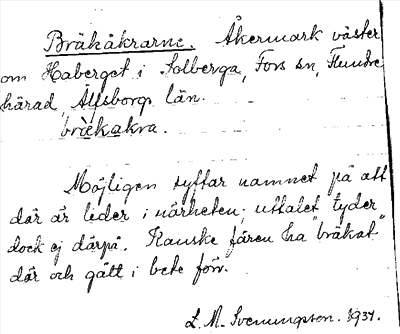 Bräkåkrarne. Åkermark väster
om Haberget i Solberga, Fors sn, Flundre
härad, Älfsborgs län.
bräkakra.
Möjligen syftar namnet på att
där är lider i närheten; uttalet tyder
dock ej därpå. Kanske fåren ha "bräkat"
där och gått i bete förr.
L. M. Svenungsson. 1931.